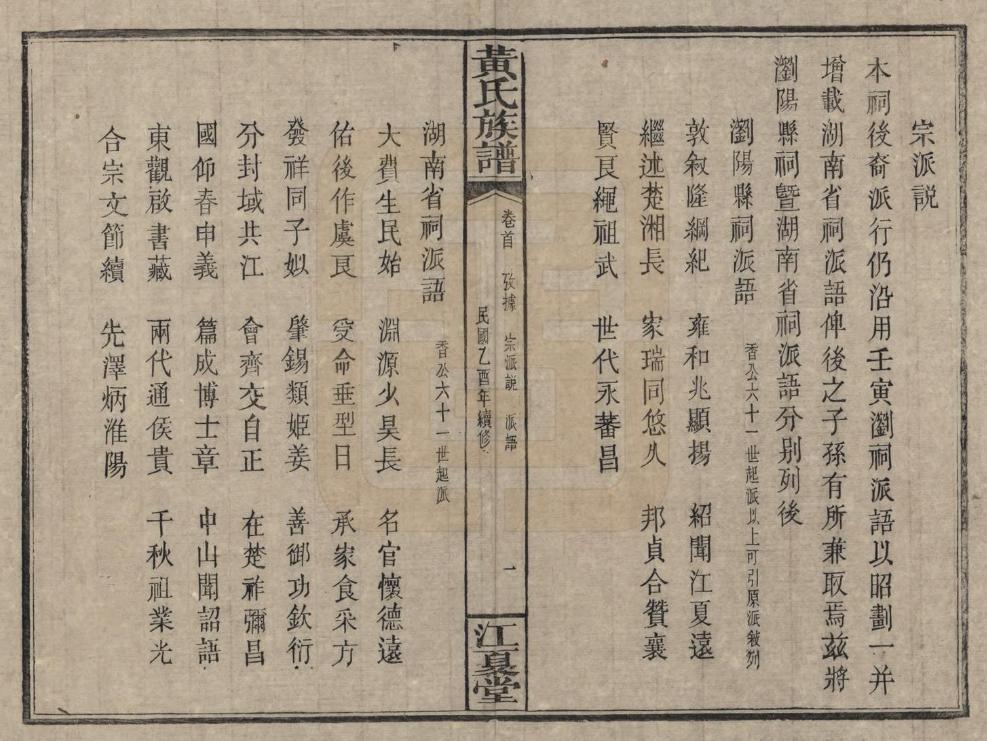 宗派説
本祠後裔派行仍沿用壬寅瀏祠派語以昭劃一并
增載湖南省祠派語俾後之子孫有所兼取焉兹將
瀏陽縣祠暨湖南省祠派語分别列後
瀏陽縣祠派語 香公六十一世起派以上可引原派敘列
敦敘隆綱紀 雍和兆顯揚 紹聞江夏遠
繼述楚湘長 家瑞同悠久 邦貞合贊襄
賢良繩祖武 世代永蕃昌
黃氏族譜
卷首 攷據 宗派説 派語
民國乙酉年續修
一
江夏堂
湖南省祠派語 香公六十一世起派
大費生民始 淵源少昊長 名官懷德遠
佑後作虞良 受命垂型日 承家食采方
發祥同子姒 肇錫類姬姜 善御功欽衍
分封域共江 會齊交自正 在楚祚彌昌
國仰春申義 篇成博士章 申山聞詔語
東觀啟書藏 兩代通侯貴 千秋祖業光
合宗文節續 先澤炳淮陽